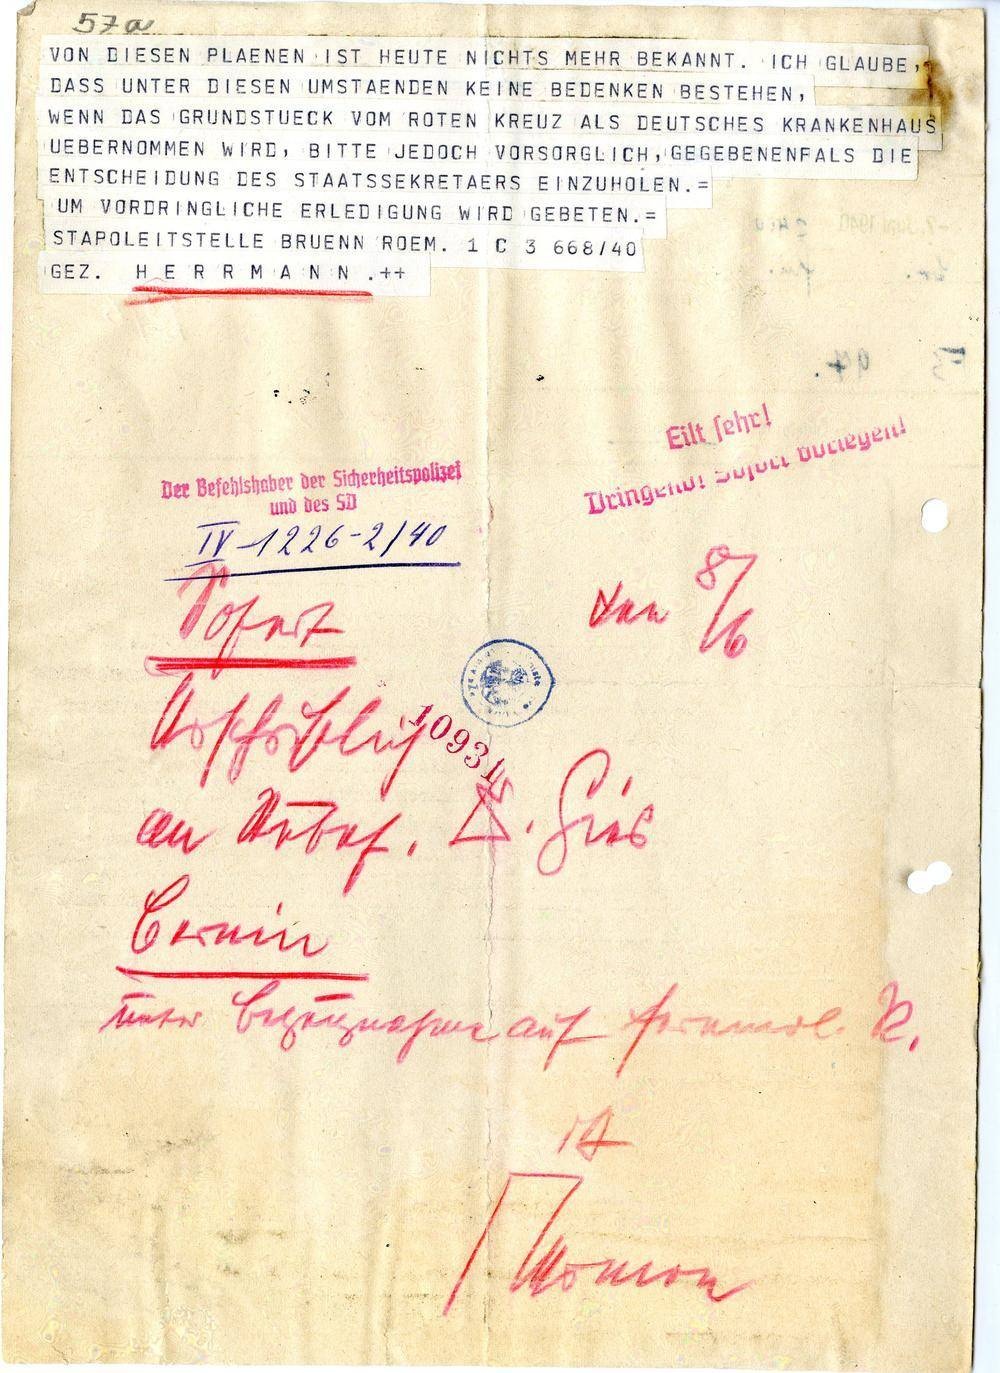 57a
VON DIESEN PLAENEN IST HEUTE NICHTS MEHR BEKANNT. ICH GLAUBE,
DASS UNTER DIESEN UMSTAENDEN KEINE BEDENKEN BESTEHEN,
WENN DAS GRUNDSTUECK VOM ROTEN KREUZ ALS DEUTSCHES KRANKENHAUS
UEBERNOMMEN WIRD, BITTE JEDOCH VORSORGLICH, GEGEBENENFALS DIE
ENTSCHEIDUNG DES STAATSSEKRETAERS EINZUHOLEN.=
UM VORDRINGLICHE ERLEDIGUNG WIRD GEBETEN.=
STAPOLEITSTELLE BRUENN ROEM. 1 C 3 668/40
GEZ. H E R R M A N N .++
Eilt sehr!
Dringend! Sofort vorlegen!
Der Befehlshaber der Sicherheitspolizei
und des SD
IV-1226-2/40
Sofort
den 8/6
Urschriftlich
10931
an Stubaf. Dr. Gies
Cernin
unter Bezugnahme auf
IA